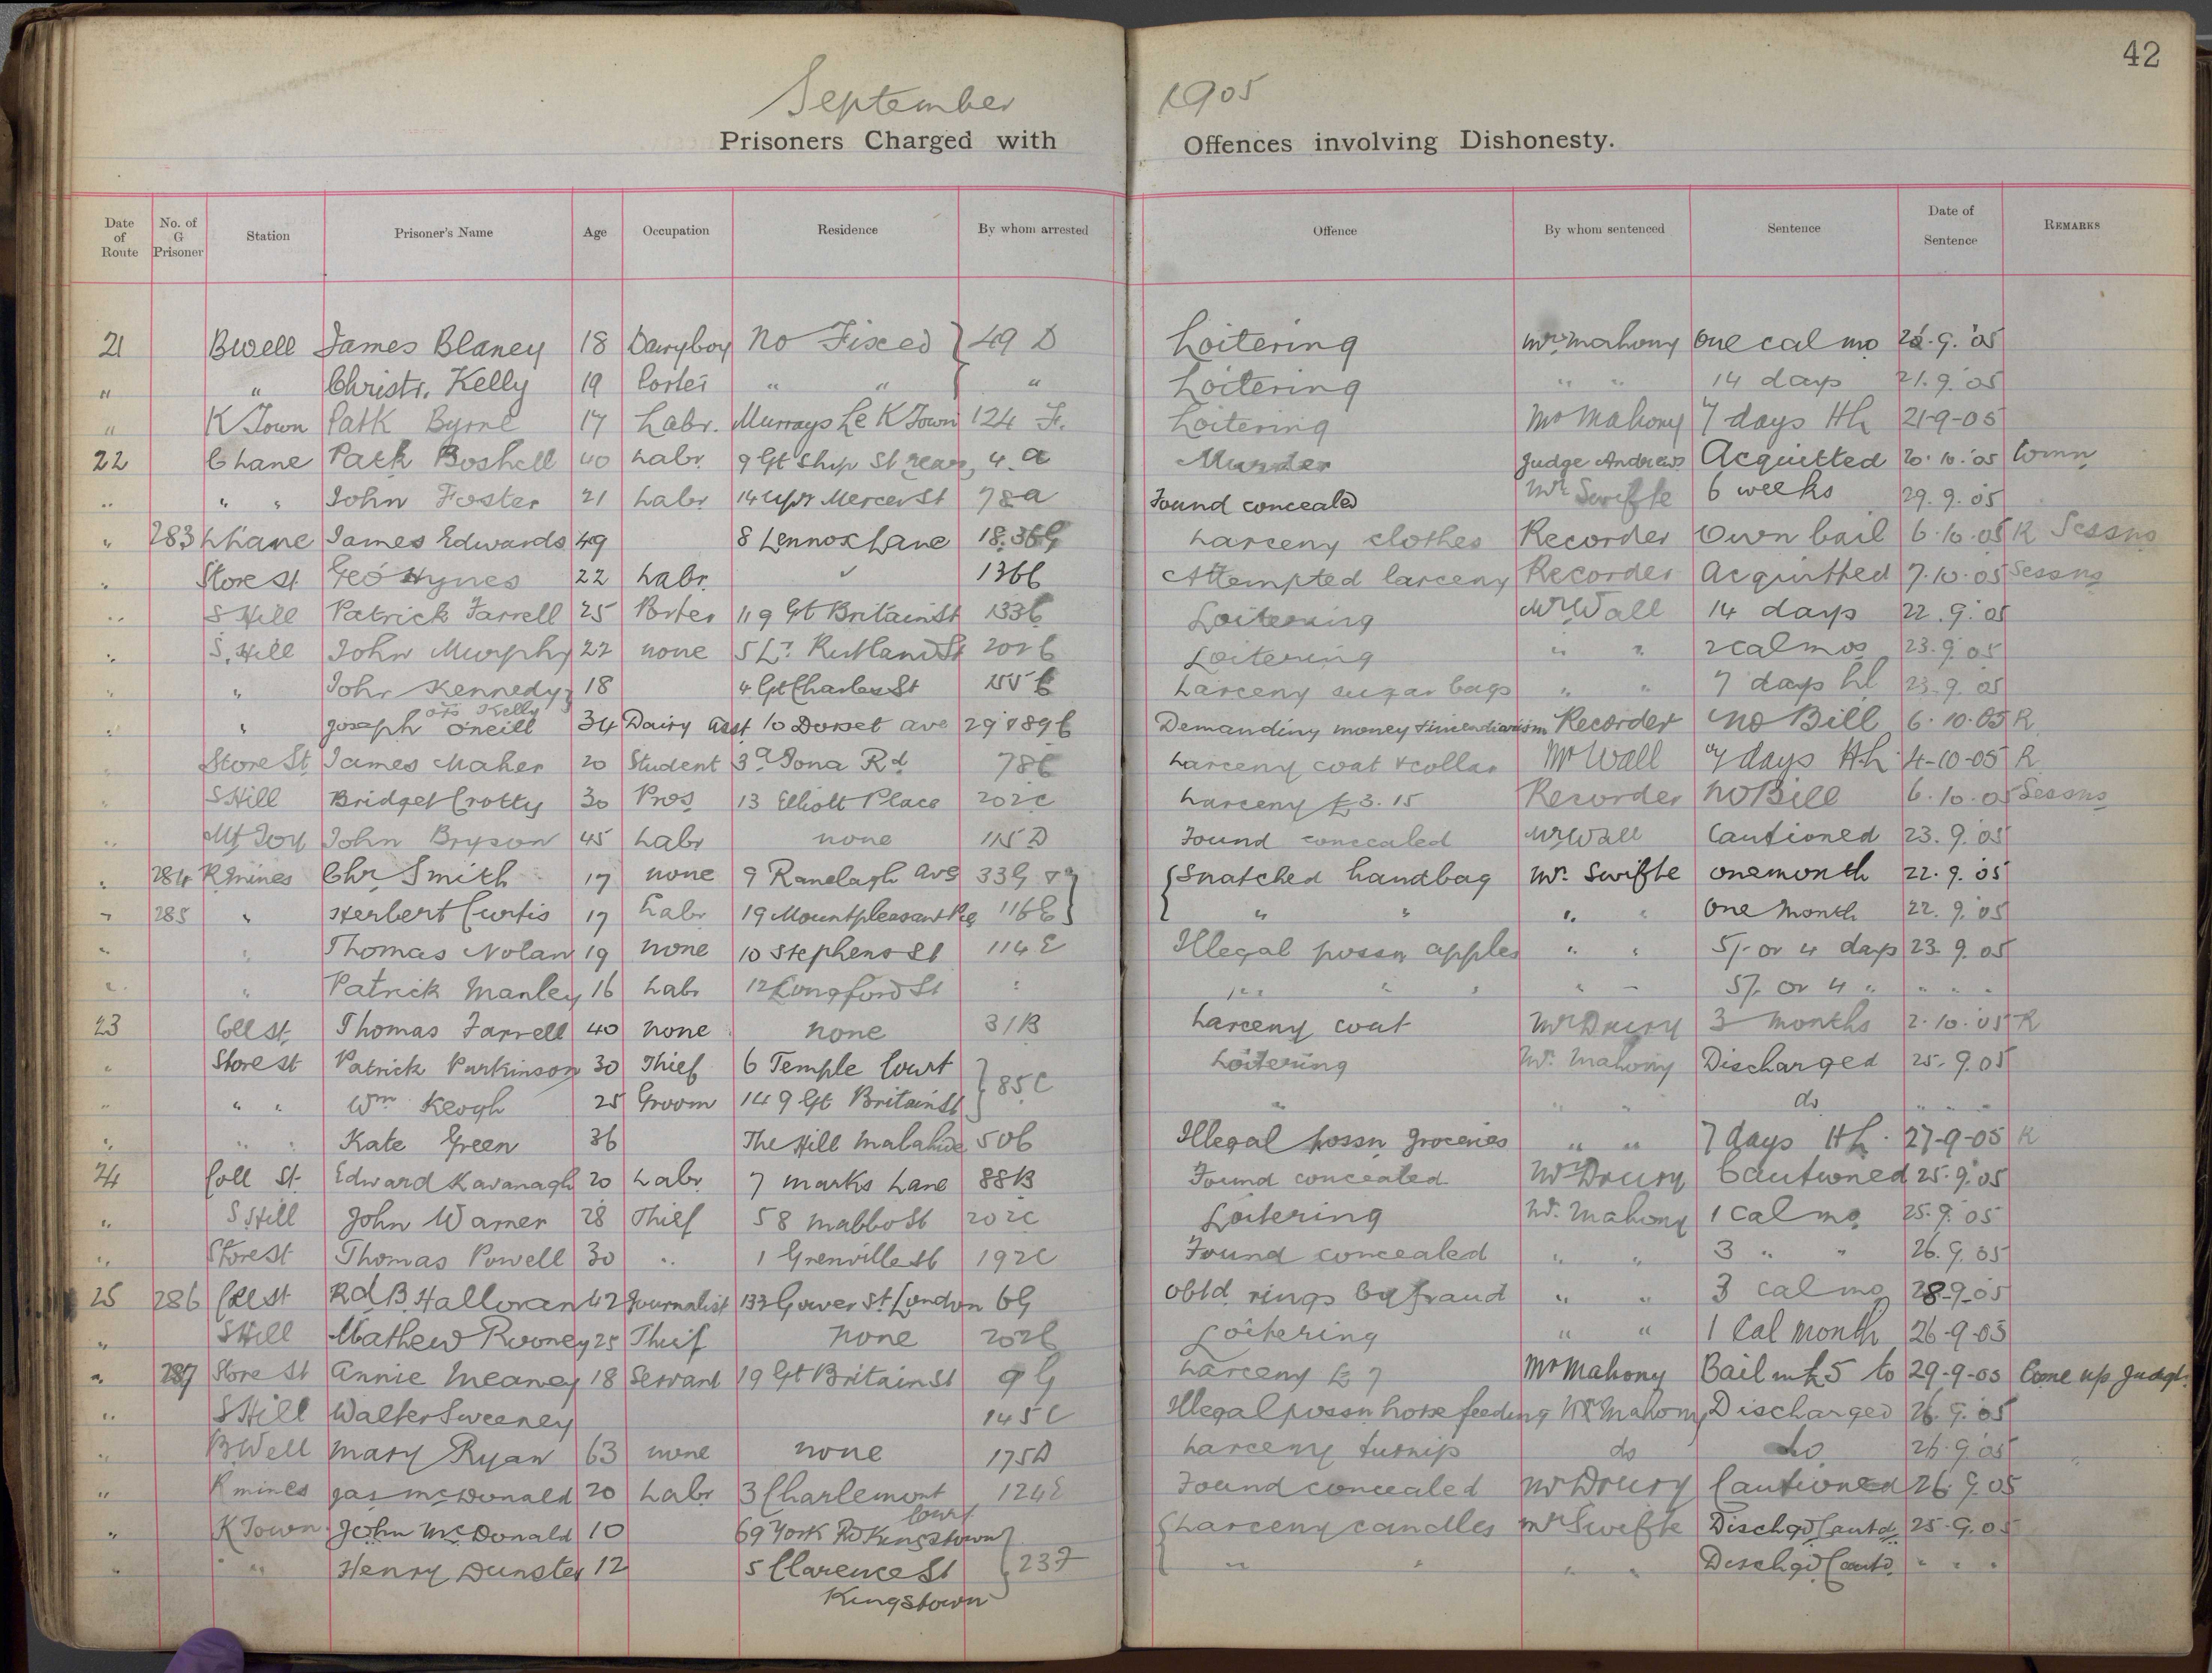 42
September 1905
Prisoners Charged with Offences involving Dishonesty.
Date of Route No. of G Prisoner Station Prisoner's Name Age Occupation Residence By whom arrested Offence By whom sentenced Sentence Date of Sentence REMARKS
21 Bwell James Blaney 18 Dairyboy No Fixed 49 D Loitering Mr Mahony One cal mo 26.9.'05
" " Christr. Kelly 19 Porter " " " Loitering " " 14 days 21.9.'05
" K Town Patk Byrne 17 Labr. Murrays Le K Town 124 F. Loitering Mr Mahony 7 days Hh 21-9-05
22 C Lane Patk Boshell 40 Labr 9 Gt Ship St rear, 4.a Murder Judge Andrews Acquitted 20.10.'05 Comn
" " " John Foster 21 Labr 14 Upr Mercer St 78a Found concealed Mr Swifte 6 weeks 29.9.05
" 283 L Lane James Edwards 49 8 Lennox Lane 18.36G Larceny clothes Recorder Own bail 6.10.05 R Sessns
" Store St. Geo Hynes 22 Labr. " 136C Attempted larceny Recorder Acquitted 7.10.05 Sessns
" S Hill Patrick Farrell 25 Porter 119 Gt Britain St 133C Loitering Mr Wall 14 days 22.9.05
" S. Hill John Murphy 22 none 5 Lr Rutland St 202C Loitering " " 2 cal mos 23.9.05
" " John Kennedy 18 4 Gt Charles St 155C Larceny sugar bags " " 7 days hl 23.9.05
ors Kelly
" " Joseph O'neill 34 Dairy asst 10 Dorset ave 29 & 89C Demanding money & incendiarism Recorder No Bill 6.10.05 R
" Store St. James Maher 20 Student 3a Iona Rd 78C Larceny coat & collar Mr Wall 7 days Hh 4-10-05 R
" S Hill Bridget Crotty 30 Pros 13 Elliott Place 202C Larceny £3.15 Recorder No Bill 6.10.05 Sessns
" Mt Joy John Bryson 45 Labr none 115 D Found concealed Mr Wall Cautioned 23.9.05
" 284 R mines Chr Smith 17 none 9 Ranelagh ave 33G & Snatched handbag Mr. Swifte one month 22.9.05
" 285 " Herbert Curtis 17 Labr 19 Mountpleasant Pce 116E " " " " One Month 22.9.05
" " Thomas Nolan 19 none 10 Stephens St 114 E Illegal possn apples " " 5/- or 4 days 23.9.05
" " Patrick Manley 16 Labr 12 Longford St " " " " " " 5/- or 4 " " " "
23 Coll St. Thomas Farrell 40 none none 31B Larceny coat Mr Drury 3 months 2.10.05 R
" Store St Patrick Parkinson 30 Thief 6 Temple Court 85C Loitering Mr. Mahony Discharged 25.9.05
" " " Wm Keogh 25 Groom 149 Gt Britain St " " " do " " "
" " " Kate Green 36 The Hill Malahide 50C Illegal possn groceries " " 7 days Hh. 27-9-05 R
24 Coll St. Edward Kavanagh 20 Labr 7 Marks Lane 88B Found concealed Mr Drury Cautioned 25.9.05
" S Hill John Warner 28 Thief 58 Mabbot St 202C Loitering Mr. Mahony 1 cal mo 25.9.05
" Store St Thomas Powell 30 " 1 Grenville St 192C Found concealed " " 3 " " 26.9.05
25 286 Coll St Rd B. Halloran 42 Journalist 133 Gower St. London 6G Obtd rings by fraud " " 3 cal mo 28-9-05
" S Hill Mathew Rooney 25 Thief none 202C Loitering " " 1 Cal month 26-9-05
" 287 Store St Annie Meaney 18 Servant 19 Gt Britain St 9G Larceny £7 Mr Mahony Bail in £5 to 29-9-05 Come up Judgt.
" S Hill Walter Sweeney 145C Illegal possn horse feeding Mr Mahony Discharged 26.9.05
" B Well Mary Ryan 63 none none 175D Larceny turnip do do 26.9.05
" R mines Jas McDonald 20 Labr 3 Charlemont Court 124E Found concealed Mr Drury Cautioned 26.9.05
" K Town John McDonald 10 69 York Rd Kingstown Larceny candles Mr Swifte Dischgd Cautd 25.9.05
" " Henry Dunster 12 5 Clarence St Kingstown 23F " " " " Dischgd Cautd " " "